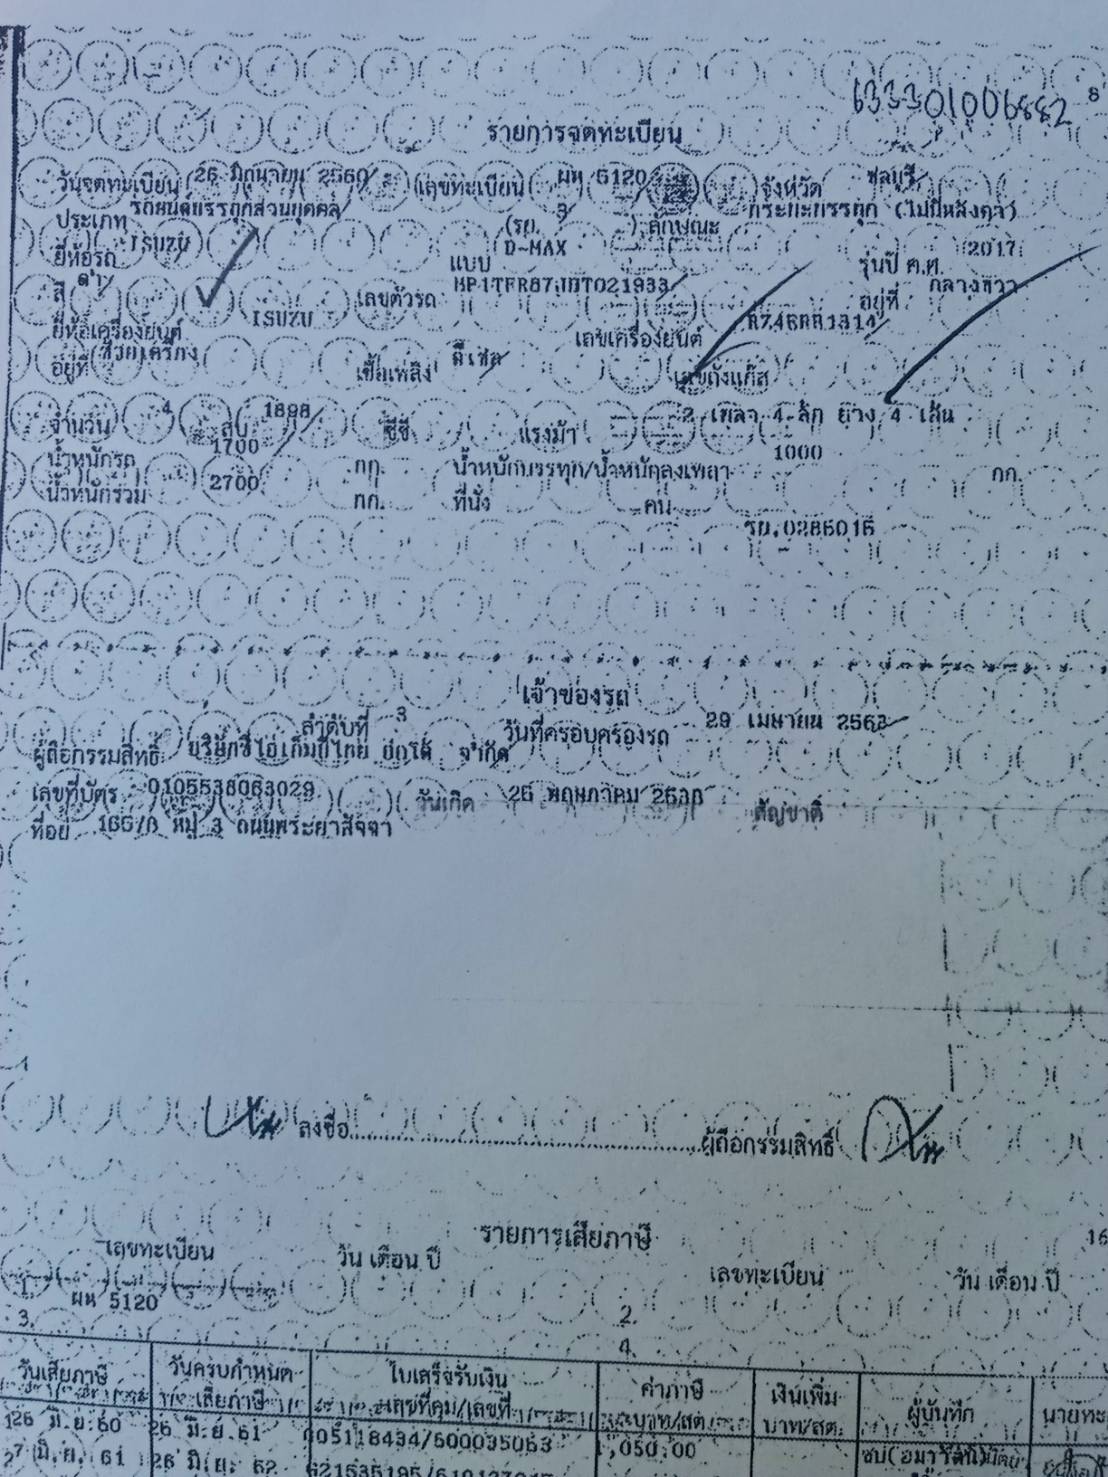 8
รายการจดทะเบียน
วันจดทะเบียน 26 มิถุนายน 2560 เลขทะเบียน ผห 5120 จังหวัด ชลบุรี
ประเภท รถยนต์บรรทุกส่วนบุคคล (รย. 3 ) ลักษณะ กระบะบรรทุก (ไม่มีหลังคา)
ยี่ห้อรถ ISUZU แบบ D-MAX รุ่นปี ค.ศ. 2017
สี ดำ เลขตัวรถ อยู่ที่ กลางขวา
ยี่ห้อเครื่องยนต์ ISUZU เลขเครื่องยนต์
อยู่ที่ ขวาเครื่อง เชื้อเพลิง ดีเซล เลขถังแก๊ส
จำนวน 4 สูบ 1898 ซีซี แรงม้า 2 เพลา 4 ล้อ ยาง 4 เส้น
น้ำหนักรถ 1700 กก. น้ำหนักบรรทุก/น้ำหนักลงเพลา 1000 กก.
น้ำหนักรวม 2700 กก. ที่นั่ง คน
รย.0286016
เจ้าของรถ
ลำดับที่ 3 วันที่ครอบครองรถ 29 เมษายน 2563
ผู้ถือกรรมสิทธิ์ จำกัด
เลขที่บัตร 0105538063029 วันเกิด 26 พฤษภาคม สัญชาติ
ที่อยู่ หมู่ 3 ถนนพระยาสัจจา
ลงชื่อ ผู้ถือกรรมสิทธิ์
16
รายการเสียภาษี
เลขทะเบียน วัน เดือน ปี เลขทะเบียน วัน เดือน ปี
1. ผห 5120 2.
3. 4.
วันเสียภาษี วันครบกำหนด เสียภาษี ใบเสร็จรับเงิน เลขที่คุม/เลขที่ ค่าภาษี บาท/สต. เงินเพิ่ม บาท/สต. ผู้บันทึก นายทะ
26 มิ.ย.60 26 มิ.ย.61 005118434/600035063 1,050.00
27 มิ.ย. 61 26 มิ.ย. 62